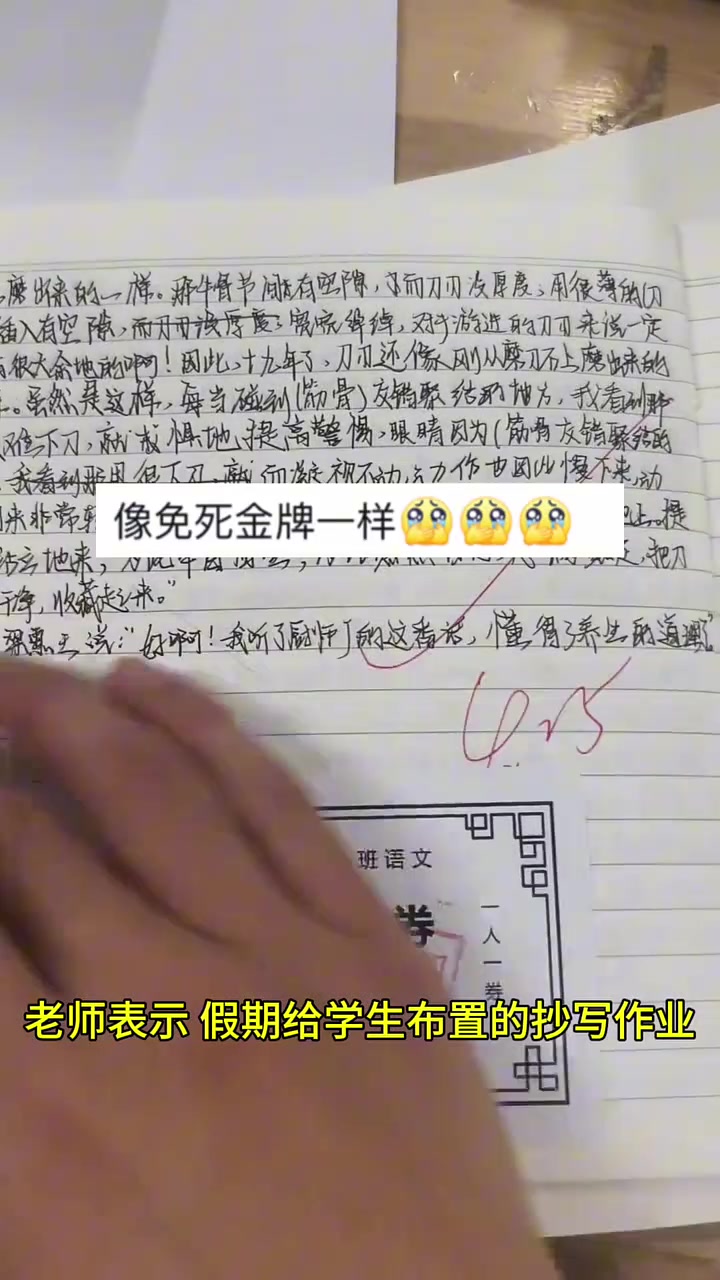 磨出来的一样。那牛骨节间有空隙，而刀刃没厚度；用很薄的刀
插入有空隙，而刀刃没厚度；宽宽绰绰，对于游近的刀刃来说一定
很大余地的啊！因此，十九年了，刀刃还像刚从磨刀石上磨出来的
虽然是这样，每当碰到(筋骨)交错聚结的地方，我看到那
难下刀，就 惧地提高警惕，眼睛因为(筋骨交错聚结的
我看到那里很下刀，就 视不动，动作也因此慢下来，动
像免死金牌一样🥹🥹🥹
来非常轻
上。提
地来，
把刀
干净，收藏起来。”
梁惠王说：“好啊！我听了厨师丁的这番话，懂得了养生的道理”
4.25
班语文
券
一人一券
老师表示 假期给学生布置的抄写作业